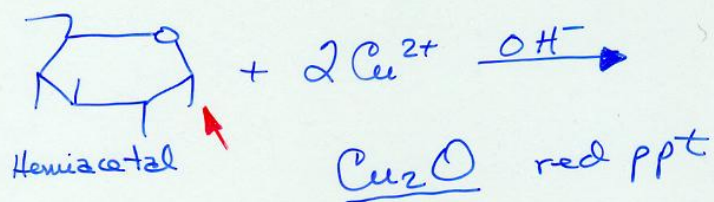 O + 2Cu²⁺ OH⁻
Hemiacetal Cu₂O red ppt